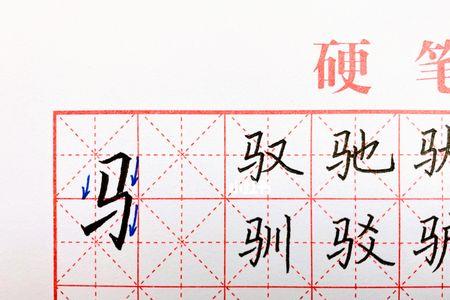 硬笔
马
驭 驰
驯 驳